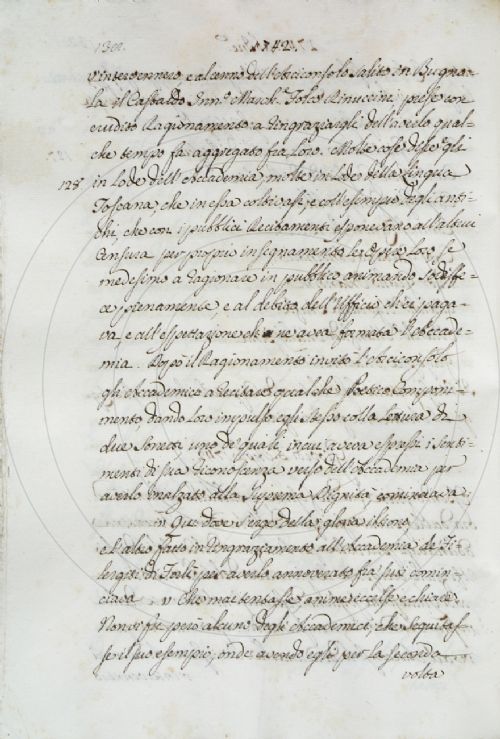 130.
1742
v'intervennero e al cenno dell'Arciconsolo salito in Bugno-
la il Castaldo Inn.º March.e Folco Rinuccini prese con
erudito Ragionamento a ringraziargli dell'averlo qual-
che tempo fa aggregato fra loro. Molte cose disse egli
128 in lode dell'Accademia, molte in lode della lingua
Toscana, che in essa coltivasi, e coll'esempio degli anti-
chi, che con i pubblici Recitamenti esponevano all'altrui
Censura per proprio insegnamento le Opere loro, se
medesimo a ragionare in pubblico animando sodisfe-
ce pienamente, e al debito dell'Ufficio ch'ei paga-
va, e all'espettazione che ne avea formata l'Accade-
mia. Dopo il Ragionamento invitò l'Arciconsolo
gli Accademici a recitare qualche Poetico Componi-
mento dando loro impulso egli stesso colla lettura di
due Sonetti uno de quali, in cui aveva espressi i senti-
menti di sua riconoscenza verso dell'Accademia per
averlo innalzato alla Suprema Dignità cominciava:
in Que dove s'erge della gloria il
e l'altro fatto in ringraziamento all'Accademia de Fi-
lergiti di Forlì per averlo annoverato frà suoi comin-
ciava v Che mai tentaste anime eccelse e chiare.
Non vi fu però alcuno degli Accademici, che seguitas-
se il suo esempio, onde avendo egli per la seconda
volta